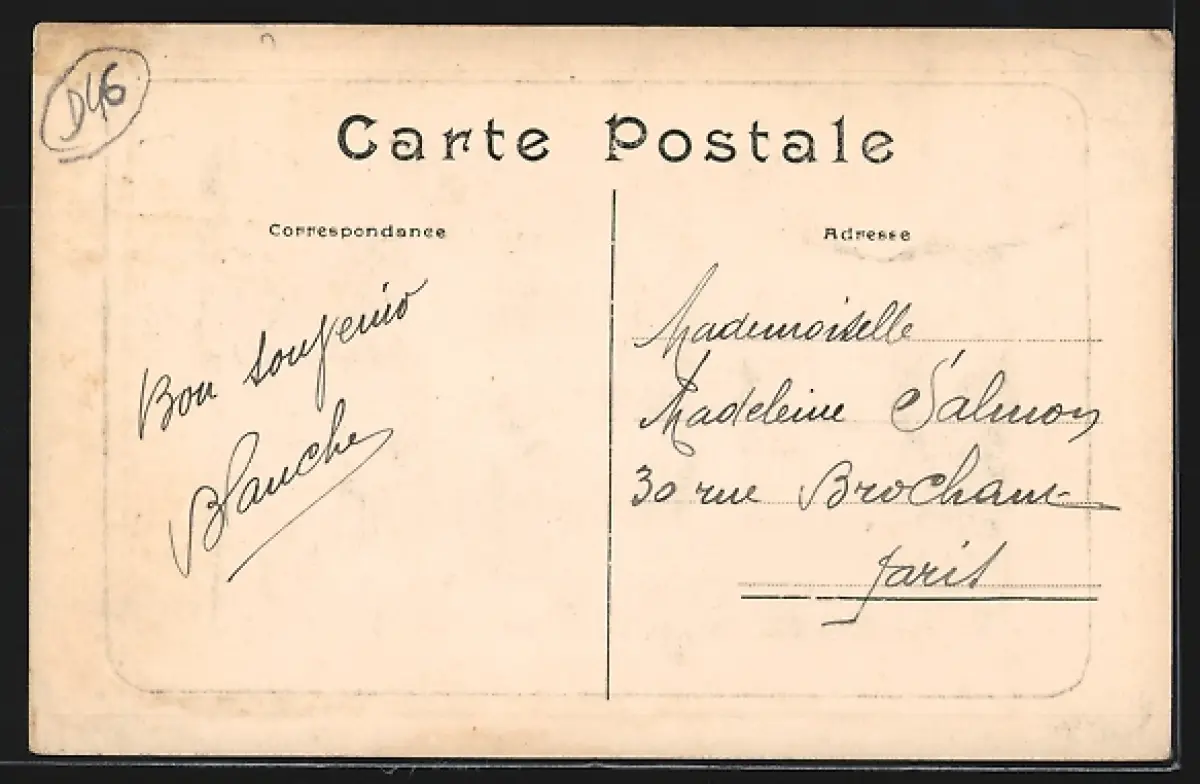 D46
Carte Postale
Correspondance
Adresse
Bon souvenir
Blanche
Mademoiselle
Madeleine Salmon
30 rue Brochant
Paris